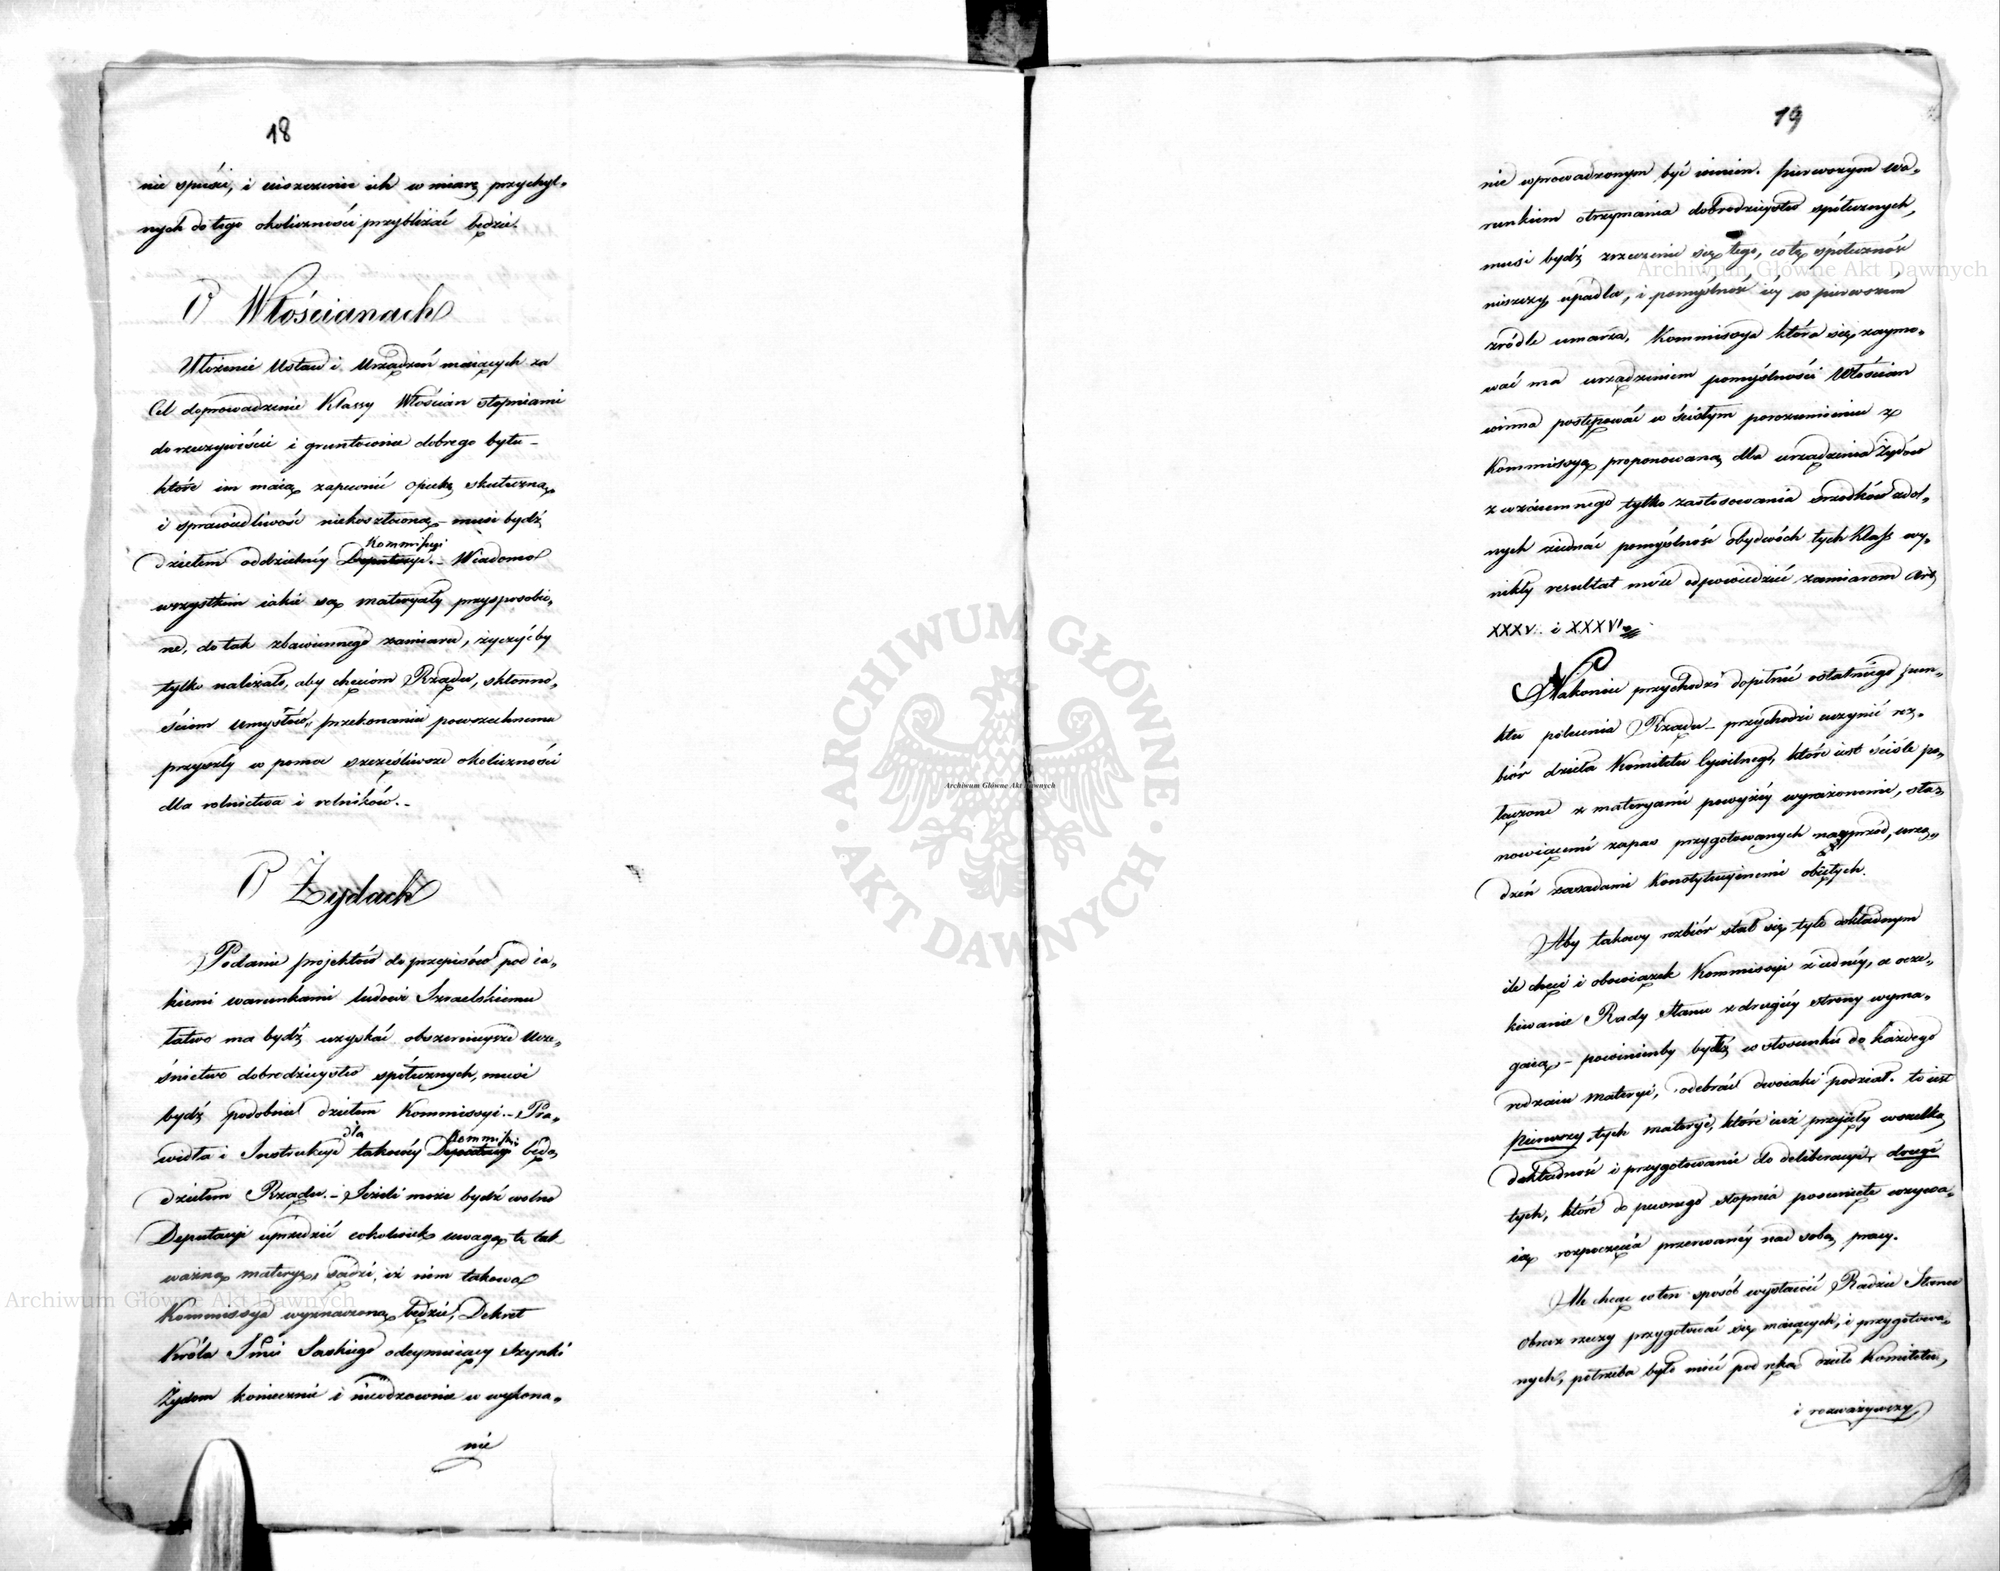 18
nie spuści, i uiszczenie ich w miarę przychyl„
nych do tego okoliczności przybliżać będzie.
O Włościanach
Ułożenie Ustaw i Urządzeń maiących za
Cel doprowadzenie Klassy Włościan stopniami
do rzeczywiście i gruntownie dobrego bytu –
które im maią zapewnić opiekę skuteczną,
i sprawiedliwość niekosztowną – musi bydź
Kommissyi
dziełem oddzielnéy Deputacyi. – Wiadomo
wszystkim iakie są materyały przysposobio„
ne, do tak zbawiennego zamiaru, życzyćby
tylko należało, aby chęciom Rządu, skłonno„
ściom umysłów, przekonaniu powszechnemu
przyszły w pomoc szczęśliwsze okoliczności
dla rolnictwa i rolników. –
O Żydach
Podanie projektów do przepisów pod ia„
kiemi warunkami ludowi Izraelskiemu
łatwo ma bydź uzyskać obszernieysze ucze„
śnictwo dobrodzieystw spółecznych, musi
bydź podobnie dziełem Kommissyi. – Pra„
dla Kommissyi
widła i Instrukcye takowéy Deputacyi będą
dziełem Rządu. – Jeżeli może bydź wolno
Deputacyi uprzedzić cokolwiek uwagą tę tak
ważną materyę, sądzi, iż nim takowa
Kommissya wyznaczoną będzie, Dekret
Króla Jmci Saskiego odeymuiący Szynki
Żydom koniecznie i nieodzownie w wykona„
nie
19
nie wprowadzonym być winien. Pierwszym wa„
runkiem otrzymania dobrodzieystw spółecznych,
musi bydź zrzeczenie się tego, co tę spółeczność
niszczy, upadla, i pomyślność iéy w pierwszém
źródle umarza, Kommissya która się zaymo„
wać ma urządzeniem pomyślności Włościan
winna postępować w ścisłym porozumieniu z
Kommissyą proponowaną dla urządzenia Żydów
z wzaiemnego tylko zastosowania środków zdol„
nych ziednać pomyślność obydwóch tych Klass wy„
nikły rezultat może odpowiedzieć zamiarom Art.
XXXV. i XXXVI.
Nakoniec przychodzi dopełnić ostatniego pun„
ktu polecenia Rządu – przychodzi uczynić roz„
biór dzieła Komitetu Cywilnego, które iest ściśle po„
łączone z materyami powyżéy wyrażonemi, sta„
nowiącemi zapas przygotowanych naprzód, urzą„
dzeń zasadami Konstytucyinemi obiętych.
Aby takowy rozbiór stał się tyle dokładnym
ile chęć i obowiązek Kommissyi z iednéy, a ocze„
kiwanie Rady Stanu z drugiéy strony wyma„
gaią, – powinienby bydź w stosunku do każdego
rodzaiu materyi, odebrać dwoiaki podział. to iest
pierwszy tych materyi, które iuż przyięły wszelką
dokładność i przygotowanie do deliberacyi, drugi
tych, które do pewnego stopnia posunięte wzywa„
ią rozpoczęcia przerwanéy nad sobą pracy.
Ale chcąc w ten sposób wystawić Radzie Stanu
obraz rzeczy przygotować się maiących, i przygotowa„
nych, potrzeba było mieć pod ręką dzieło Komitetu,
i rozważywszy
Archiwum Główne Akt Dawnych
Archiwum Główne Akt Dawnych
Archiwum Główne Akt Dawnych
ARCHIWUM GŁÓWNE · AKT DAWNYCH ·